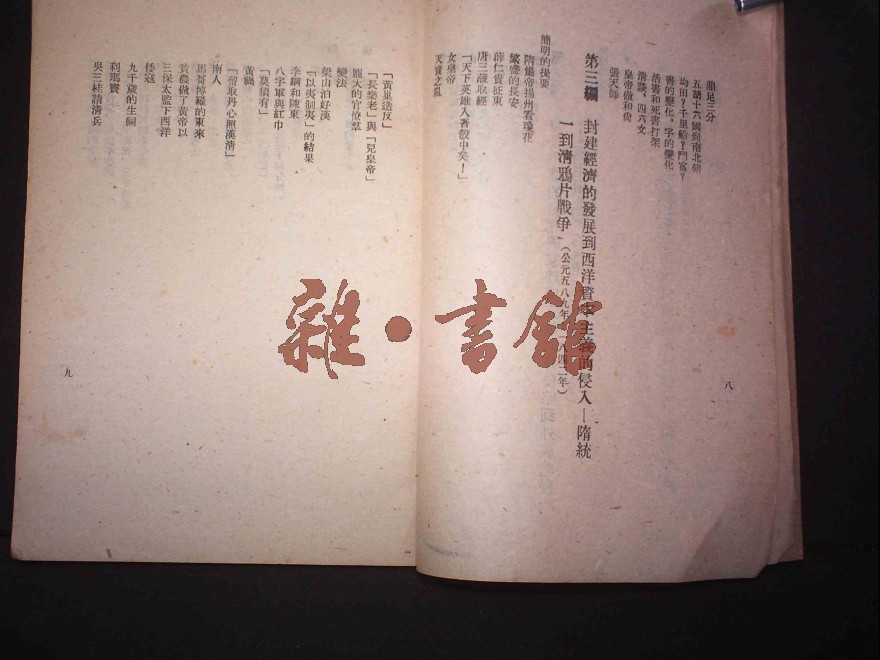 鼎足三分
五胡十六國到南北朝
均田？千里船？鬥富？
書的變化，字的變化
活書和死書打架
清談，四六文
皇帝做和尚
張天師
第三編　封建經濟的發展到西洋資本主義的侵入—隋統
一到清鴉片戰爭（公元五八九年 八四二年）
簡明的提要
隋煬帝揚州看瓊花
繁盛的長安
薛仁貴征東
唐三藏取經
「天下英雄入吾彀中矣！」
女皇帝
天寶之亂
八
「黃巢造反」
「長樂老」與「兒皇帝」
龐大的官僚羣
變法
梁山泊好漢
「以夷制夷」的結果
李綱和陳東
八字軍與紅巾
「莫須有」
黃禍
「留取丹心照漢清」
南人
馬哥博羅的東來
貧農做了黃帝以
三保太監下西洋
倭寇
九千歲的生祠
利瑪竇
吳三桂請清兵
九
雜·書館